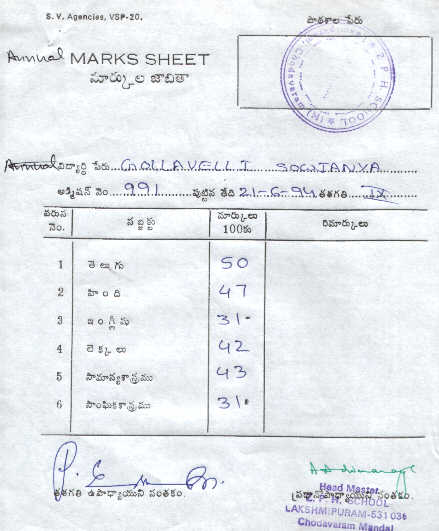 S. V. Agencies, VSP-20.
పాఠశాల పేరు
Annual MARKS SHEET
మార్కుల జాబితా
Z. P. H. SCHOOL
విద్యార్థి పేరు GOLLAVELLI SOWJANYA
అడ్మిషన్ నెం. 991 పుట్టిన తేది 21-6-94 తరగతి IX
వరుస నెం. సబ్జక్టు మార్కులు 100కు రిమార్కులు
1 తెలుగు 50
2 హింది 47
3 ఇంగ్లీషు 31
4 లెక్కలు 42
5 సామాన్యశాస్త్రము 43
6 సాంఘికశాస్త్రము 31
తరగతి ఉపాధ్యాయుని సంతకం. ప్రధానోపాధ్యాయుని సంతకం.
Head Master
Z. P. H. SCHOOL
LAKSHMIPURAM-531 036
Chodavaram Mandal